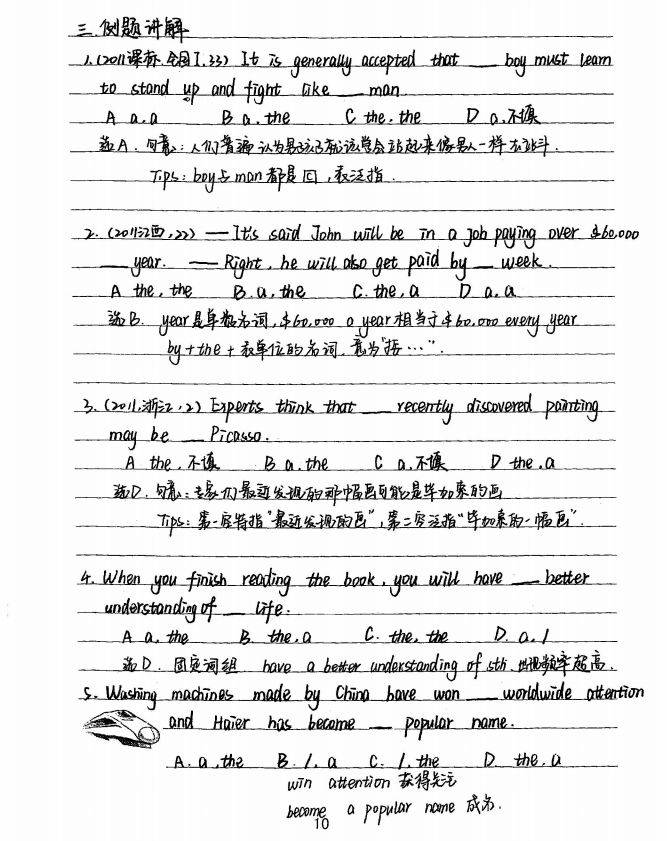 三. 例题讲解
1. (2011课标.全国I.33) It is generally accepted that ___ boy must learn
to stand up and fight like ___ man.
A a, a B a, the C the, the D a, 不填
选A. 句意:人们普遍认为男孩子都该学会站起来像男人一样去战斗.
Tips: boy与man都是 , 表泛指.
2. (2011江西,22) — It's said John will be in a job paying over $60,000
___ year. — Right, he will also get paid by ___ week.
A the, the B. a, the C. the, a D a, a
选B. year是单数名词, $60,000 a year 相当于 $60,000 every year
by + the + 表单位的名词, 意为"按…".
3. (2011,浙江,2) Experts think that ___ recently discovered painting
may be ___ Picasso.
A the, 不填 B a, the C a, 不填 D the, a
选D. 句意:专家们最近发现的那幅画可能是毕加索的画
Tips: 第一空特指"最近发现的画", 第二空泛指"毕加索的一幅画".
4. When you finish reading the book, you will have ___ better
understanding of ___ life.
A a, the B. the, a C. the, the D. a, /
选D. 固定词组 have a better understanding of sth. 出现频率超高.
5. Washing machines made by China have won ___ worldwide attention
and Haier has become ___ popular name.
A. a, the B. /, a C. /, the D. the, a
win attention 获得关注
become a popular name 成名.
10